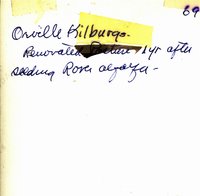 69
Orville Kilburgo.
Renovated Pasture 1 yr after
seeding Rover alfalfa -